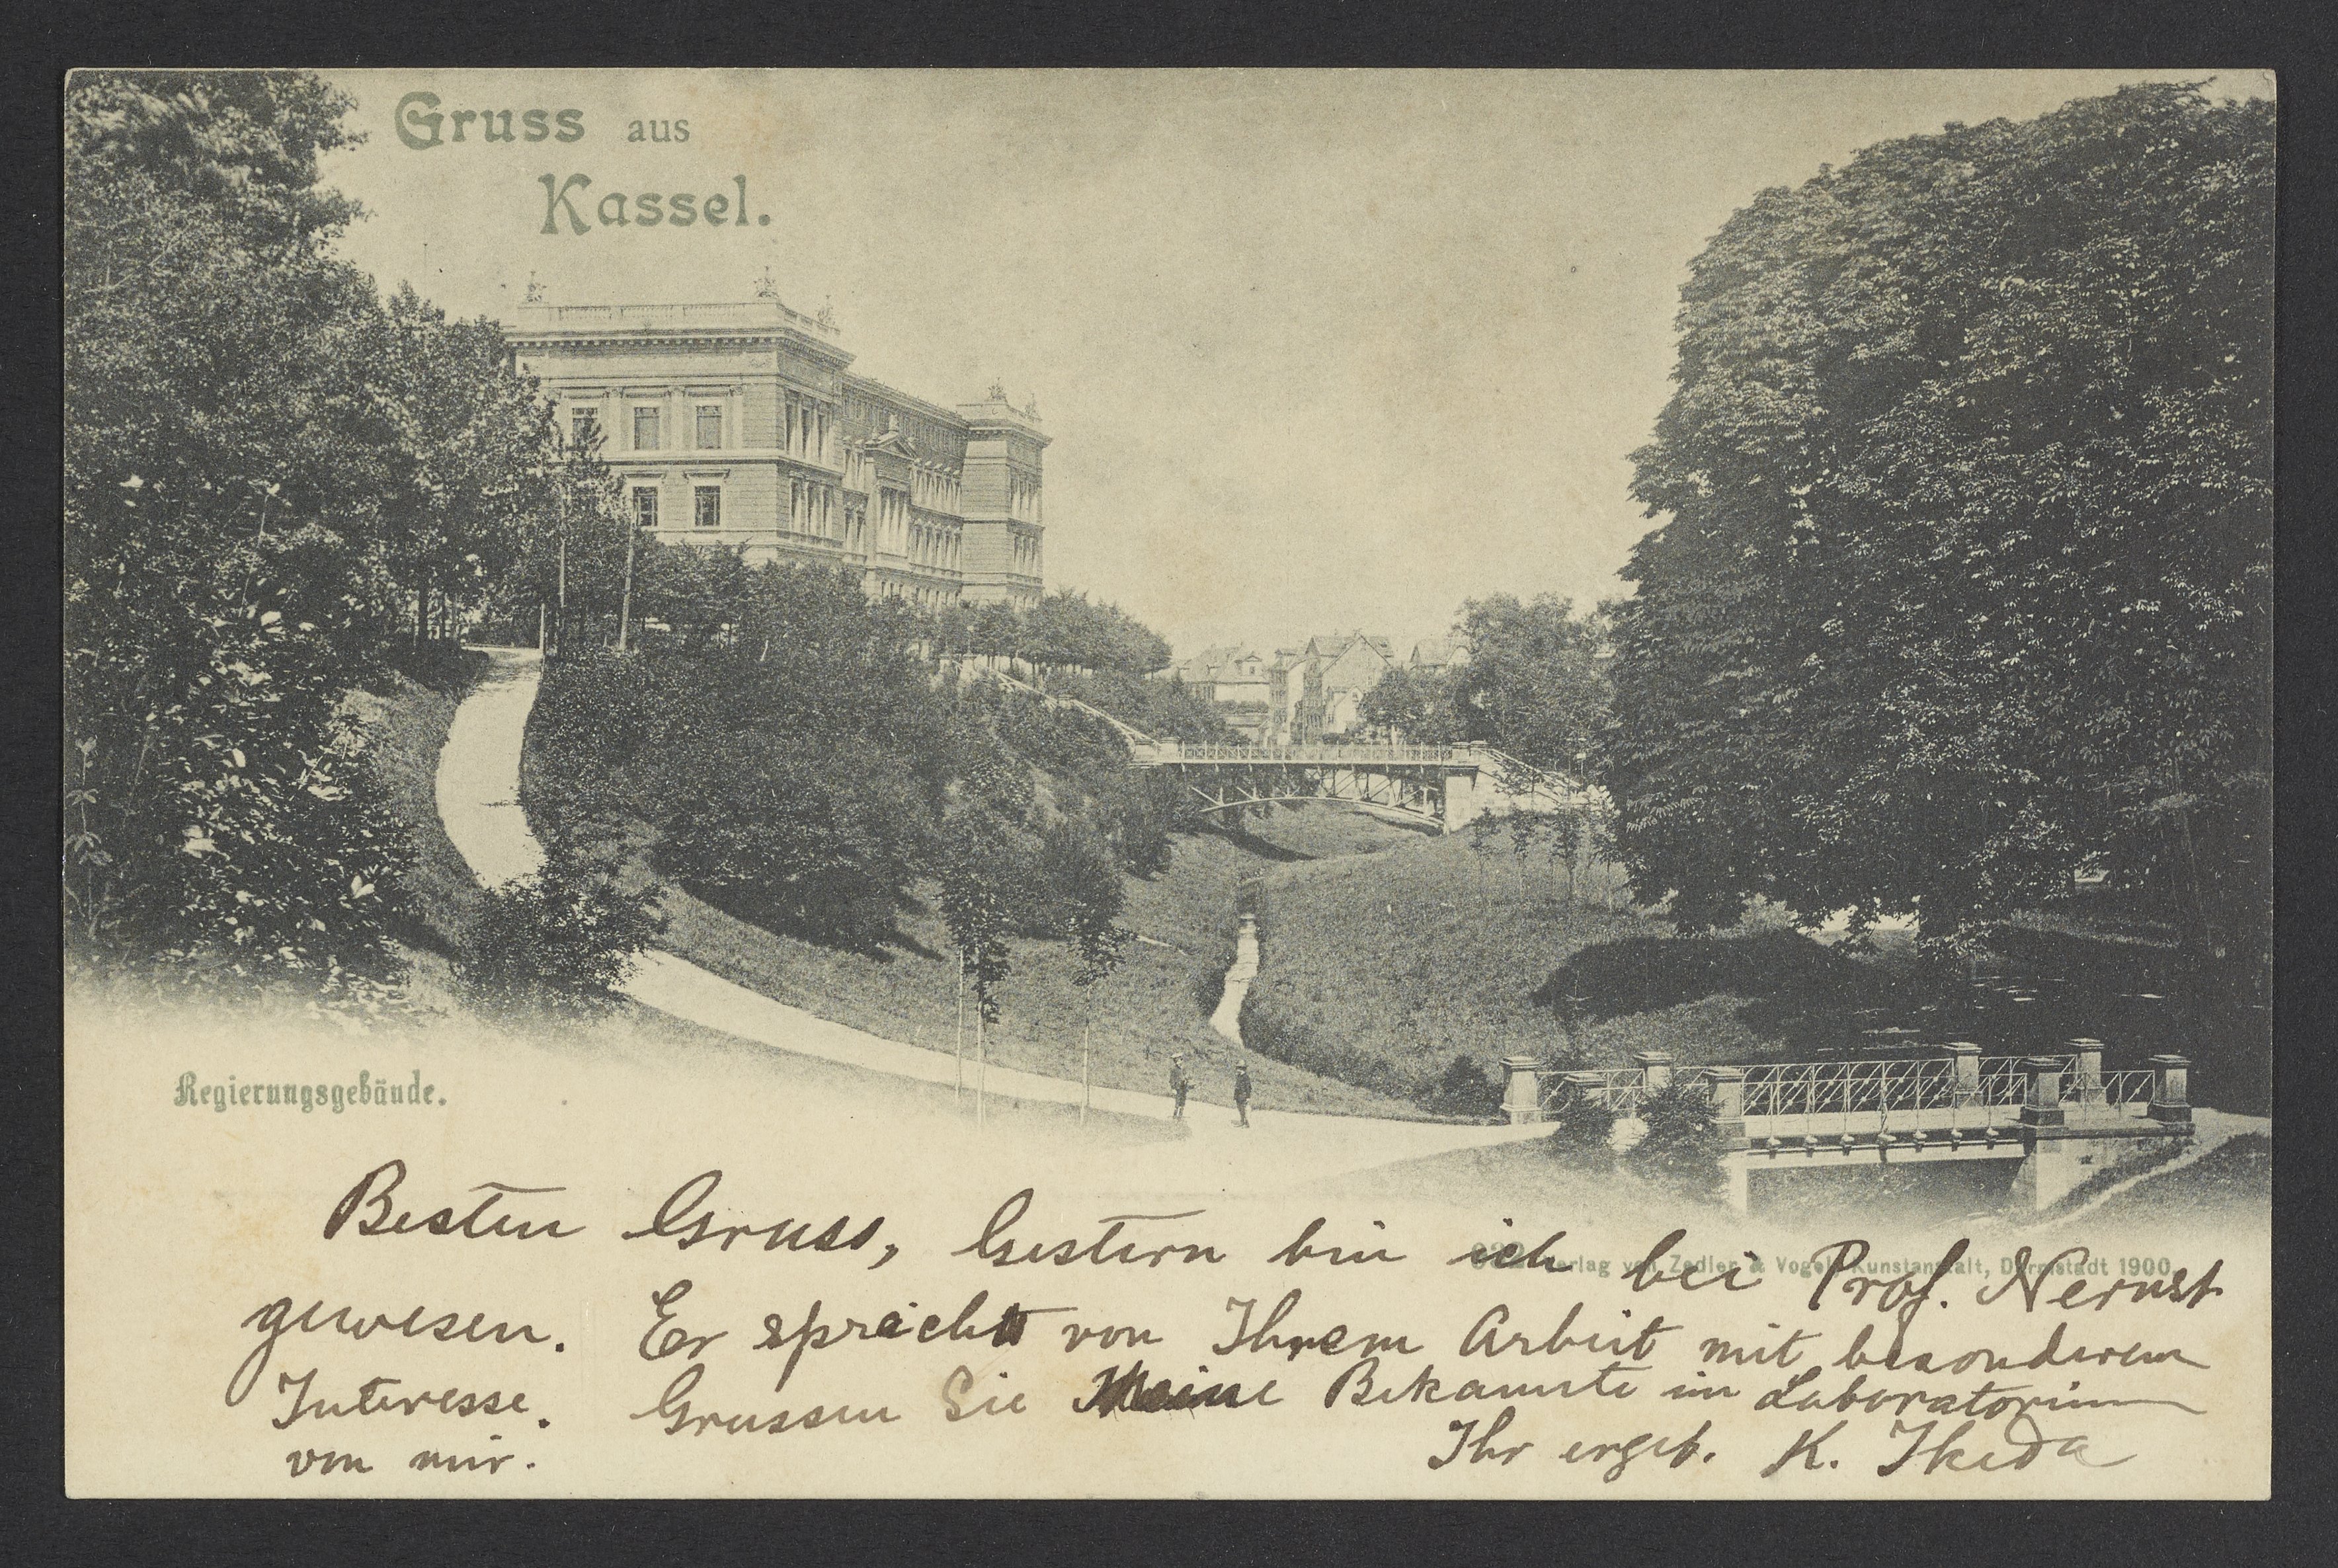 Gruss aus
Kassel.
Regierungsgebäude.
Verlag von Zedler & Vogel, Kunstanstalt, Darmstadt 1900.
Besten Gruss, Gestern bin ich bei Prof. Nernst
gewesen. Er spracht von Ihrem Arbeit mit besonderem
Interesse. Grussen Sie Meine Bekannte im Laboratorium
von mir. Ihr ergeb. K. Ikeda